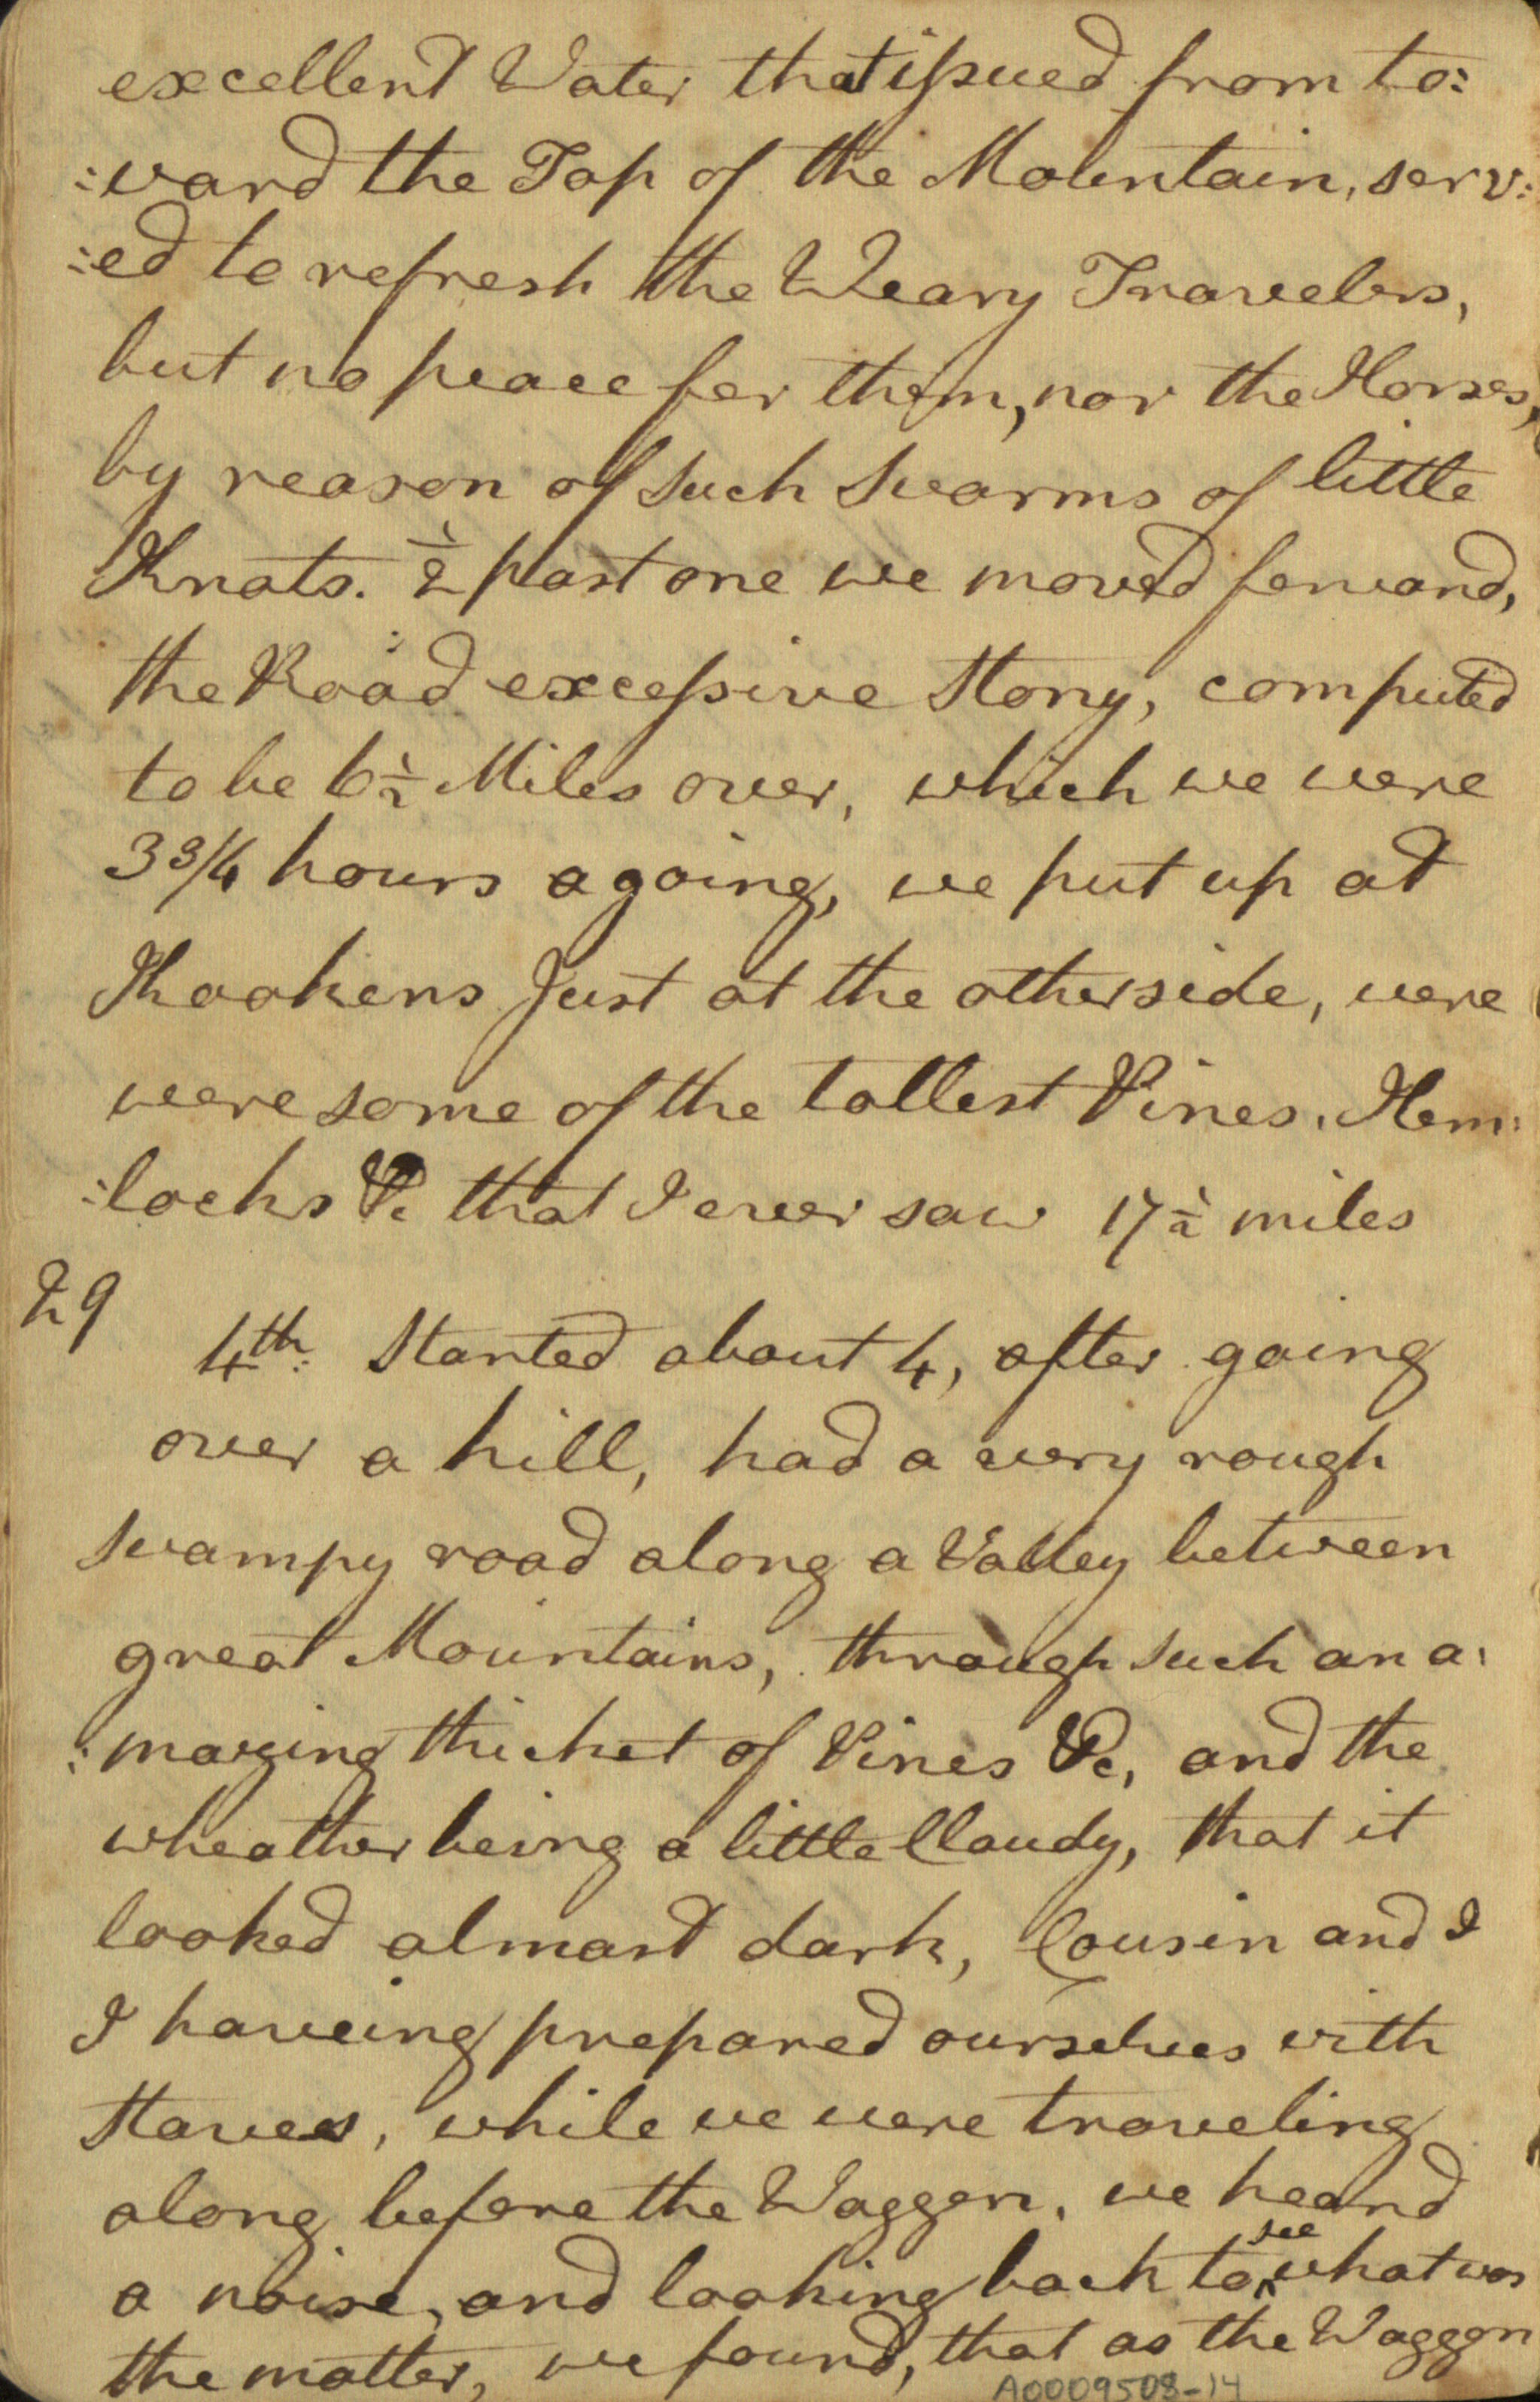 excellent Water that issued from to:
:ward the Top of the Mountain, serv:
:ed to refresh the Weary Travelers,
but no peace for them, nor the Horses,
by reason of such swarms of little
Knats. ½ past one we moved forward,
the Road excessive stony, computed
to be 6½ Miles over, which we were
3 3/4 hours a going, we put up at
Kookens Just at the otherside, were
were some of the tallest Pines, Hem:
:locks &c that I ever saw 17½ miles
29
4th: Started about 4, after going
over a hill, had a very rough
swampy road along a Valley between
great Mountains, through such an a:
:mazing thicket of Pines &c, and the
wheather being a little Cloudy, that it
looked almost dark, Cousin and I
I haveing prepared ourselves with
staves, while we were traveling
along before the Waggon, we heard
a noise, and looking back to see what was
the matter, we found, that as the Waggon
A0009508-14